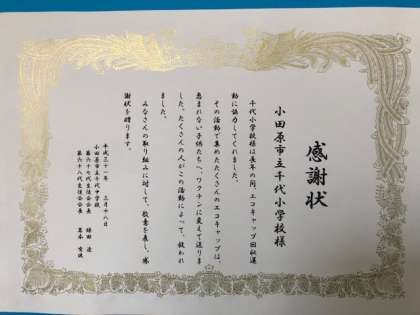 感謝状
小田原市立千代小学校様
千代小学校様は長年の間、エコキャップ回収運
動に協力してくれました。
その活動で集めたたくさんのエコキャップは、
恵まれない子供たちへ、ワクチンに変えて送りま
した。たくさんの人がこの活動によって、救われ
ました。
みなさんの取り組みに対して、敬意を表し、感
謝状を贈ります。
平成三十一年 三月十八日
小田原市立千代中学校
第六十七代生徒会会長
第六十八代生徒会会長